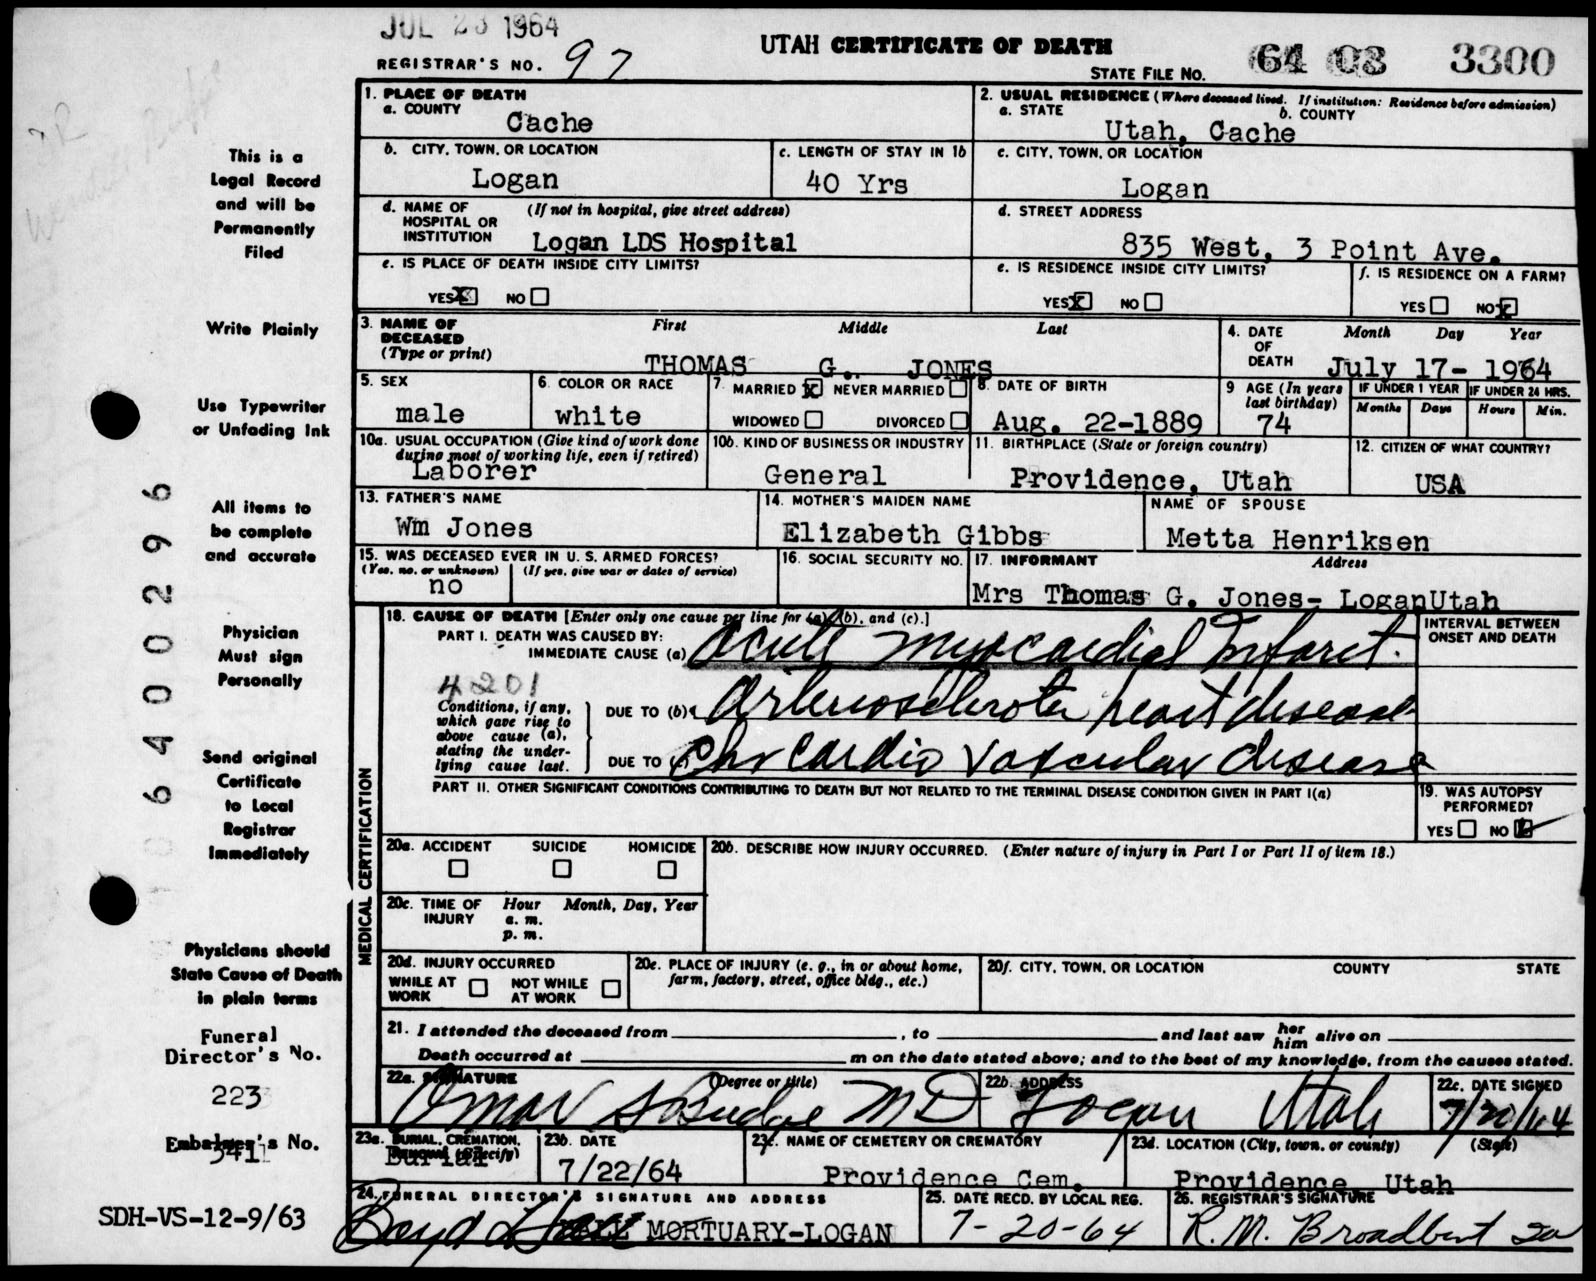 JUL 23 1964
UTAH CERTIFICATE OF DEATH
REGISTRAR'S NO. 97
STATE FILE NO. 64 08 3300
1. PLACE OF DEATH
a. COUNTY
Cache
2. USUAL RESIDENCE (Where deceased lived. If institution: Residence before admission)
a. STATE b. COUNTY
Utah, Cache
b. CITY, TOWN, OR LOCATION
Logan
c. LENGTH OF STAY IN 1b
40 Yrs
c. CITY, TOWN, OR LOCATION
Logan
d. NAME OF HOSPITAL OR INSTITUTION (If not in hospital, give street address)
Logan LDS Hospital
d. STREET ADDRESS
835 West, 3 Point Ave.
e. IS PLACE OF DEATH INSIDE CITY LIMITS?
YES X NO
e. IS RESIDENCE INSIDE CITY LIMITS?
YES X NO
f. IS RESIDENCE ON A FARM?
YES NO X
3. NAME OF DECEASED (Type or print)
First Middle Last
THOMAS G. JONES
4. DATE OF DEATH
Month Day Year
July 17- 1964
5. SEX
male
6. COLOR OR RACE
white
7. MARRIED X NEVER MARRIED
WIDOWED DIVORCED
8. DATE OF BIRTH
Aug. 22-1889
9 AGE (In years last birthday)
74
IF UNDER 1 YEAR
Months Days
IF UNDER 24 HRS.
Hours Min.
10a. USUAL OCCUPATION (Give kind of work done during most of working life, even if retired)
Laborer
10b. KIND OF BUSINESS OR INDUSTRY
General
11. BIRTHPLACE (State or foreign country)
Providence, Utah
12. CITIZEN OF WHAT COUNTRY?
USA
13. FATHER'S NAME
Wm Jones
14. MOTHER'S MAIDEN NAME
Elizabeth Gibbs
NAME OF SPOUSE
Metta Henriksen
15. WAS DECEASED EVER IN U. S. ARMED FORCES?
(Yes, no, or unknown) (If yes, give war or dates of service)
no
16. SOCIAL SECURITY NO.
17. INFORMANT Address
Mrs Thomas G. Jones- LoganUtah
18. CAUSE OF DEATH [Enter only one cause per line for (a), (b), and (c).]
PART I. DEATH WAS CAUSED BY:
IMMEDIATE CAUSE (a) Acute myocardial Infarct.
INTERVAL BETWEEN ONSET AND DEATH
4201
Conditions, if any, which gave rise to above cause (a), stating the underlying cause last.
DUE TO (b) Arteriosclerotic heart disease
DUE TO (c) Chr Cardio vascular disease
PART II. OTHER SIGNIFICANT CONDITIONS CONTRIBUTING TO DEATH BUT NOT RELATED TO THE TERMINAL DISEASE CONDITION GIVEN IN PART I(a)
19. WAS AUTOPSY PERFORMED?
YES NO
MEDICAL CERTIFICATION
20a. ACCIDENT SUICIDE HOMICIDE
20b. DESCRIBE HOW INJURY OCCURRED. (Enter nature of injury in Part I or Part II of item 18.)
20c. TIME OF INJURY Hour Month, Day, Year
a. m.
p. m.
20d. INJURY OCCURRED
WHILE AT WORK NOT WHILE AT WORK
20e. PLACE OF INJURY (e. g., in or about home, farm, factory, street, office bldg., etc.)
20f. CITY, TOWN, OR LOCATION COUNTY STATE
21. I attended the deceased from , to and last saw her him alive on
Death occurred at m on the date stated above; and to the best of my knowledge, from the causes stated.
22a. SIGNATURE (Degree or title)
Omar S Budge MD
22b. ADDRESS
Logan Utah
22c. DATE SIGNED
7/20/64
23a. BURIAL, CREMATION, REMOVAL (Specify)
Burial
23b. DATE
7/22/64
23c. NAME OF CEMETERY OR CREMATORY
Providence Cem.
23d. LOCATION (City, town, or county) (State)
Providence, Utah
24. FUNERAL DIRECTOR'S SIGNATURE AND ADDRESS
Boyd L Hall MORTUARY-LOGAN
25. DATE RECD. BY LOCAL REG.
7-20-64
26. REGISTRAR'S SIGNATURE
R.M. Broadbent
This is a
Legal Record
and will be
Permanently
Filed
Write Plainly
Use Typewriter
or Unfading Ink
All items to
be complete
and accurate
Physician
Must sign
Personally
Send original
Certificate
to Local
Registrar
Immediately
Physicians should
State Cause of Death
in plain terms
Funeral
Director's No.
223
Embalmer's No.
541
SDH-VS-12-9/63
06400296